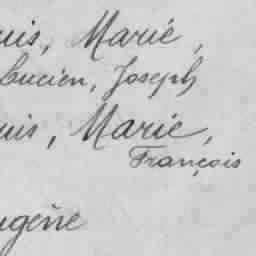 uis, Marie,
Lucien, Joseph
uis, Marie,
François
ugène